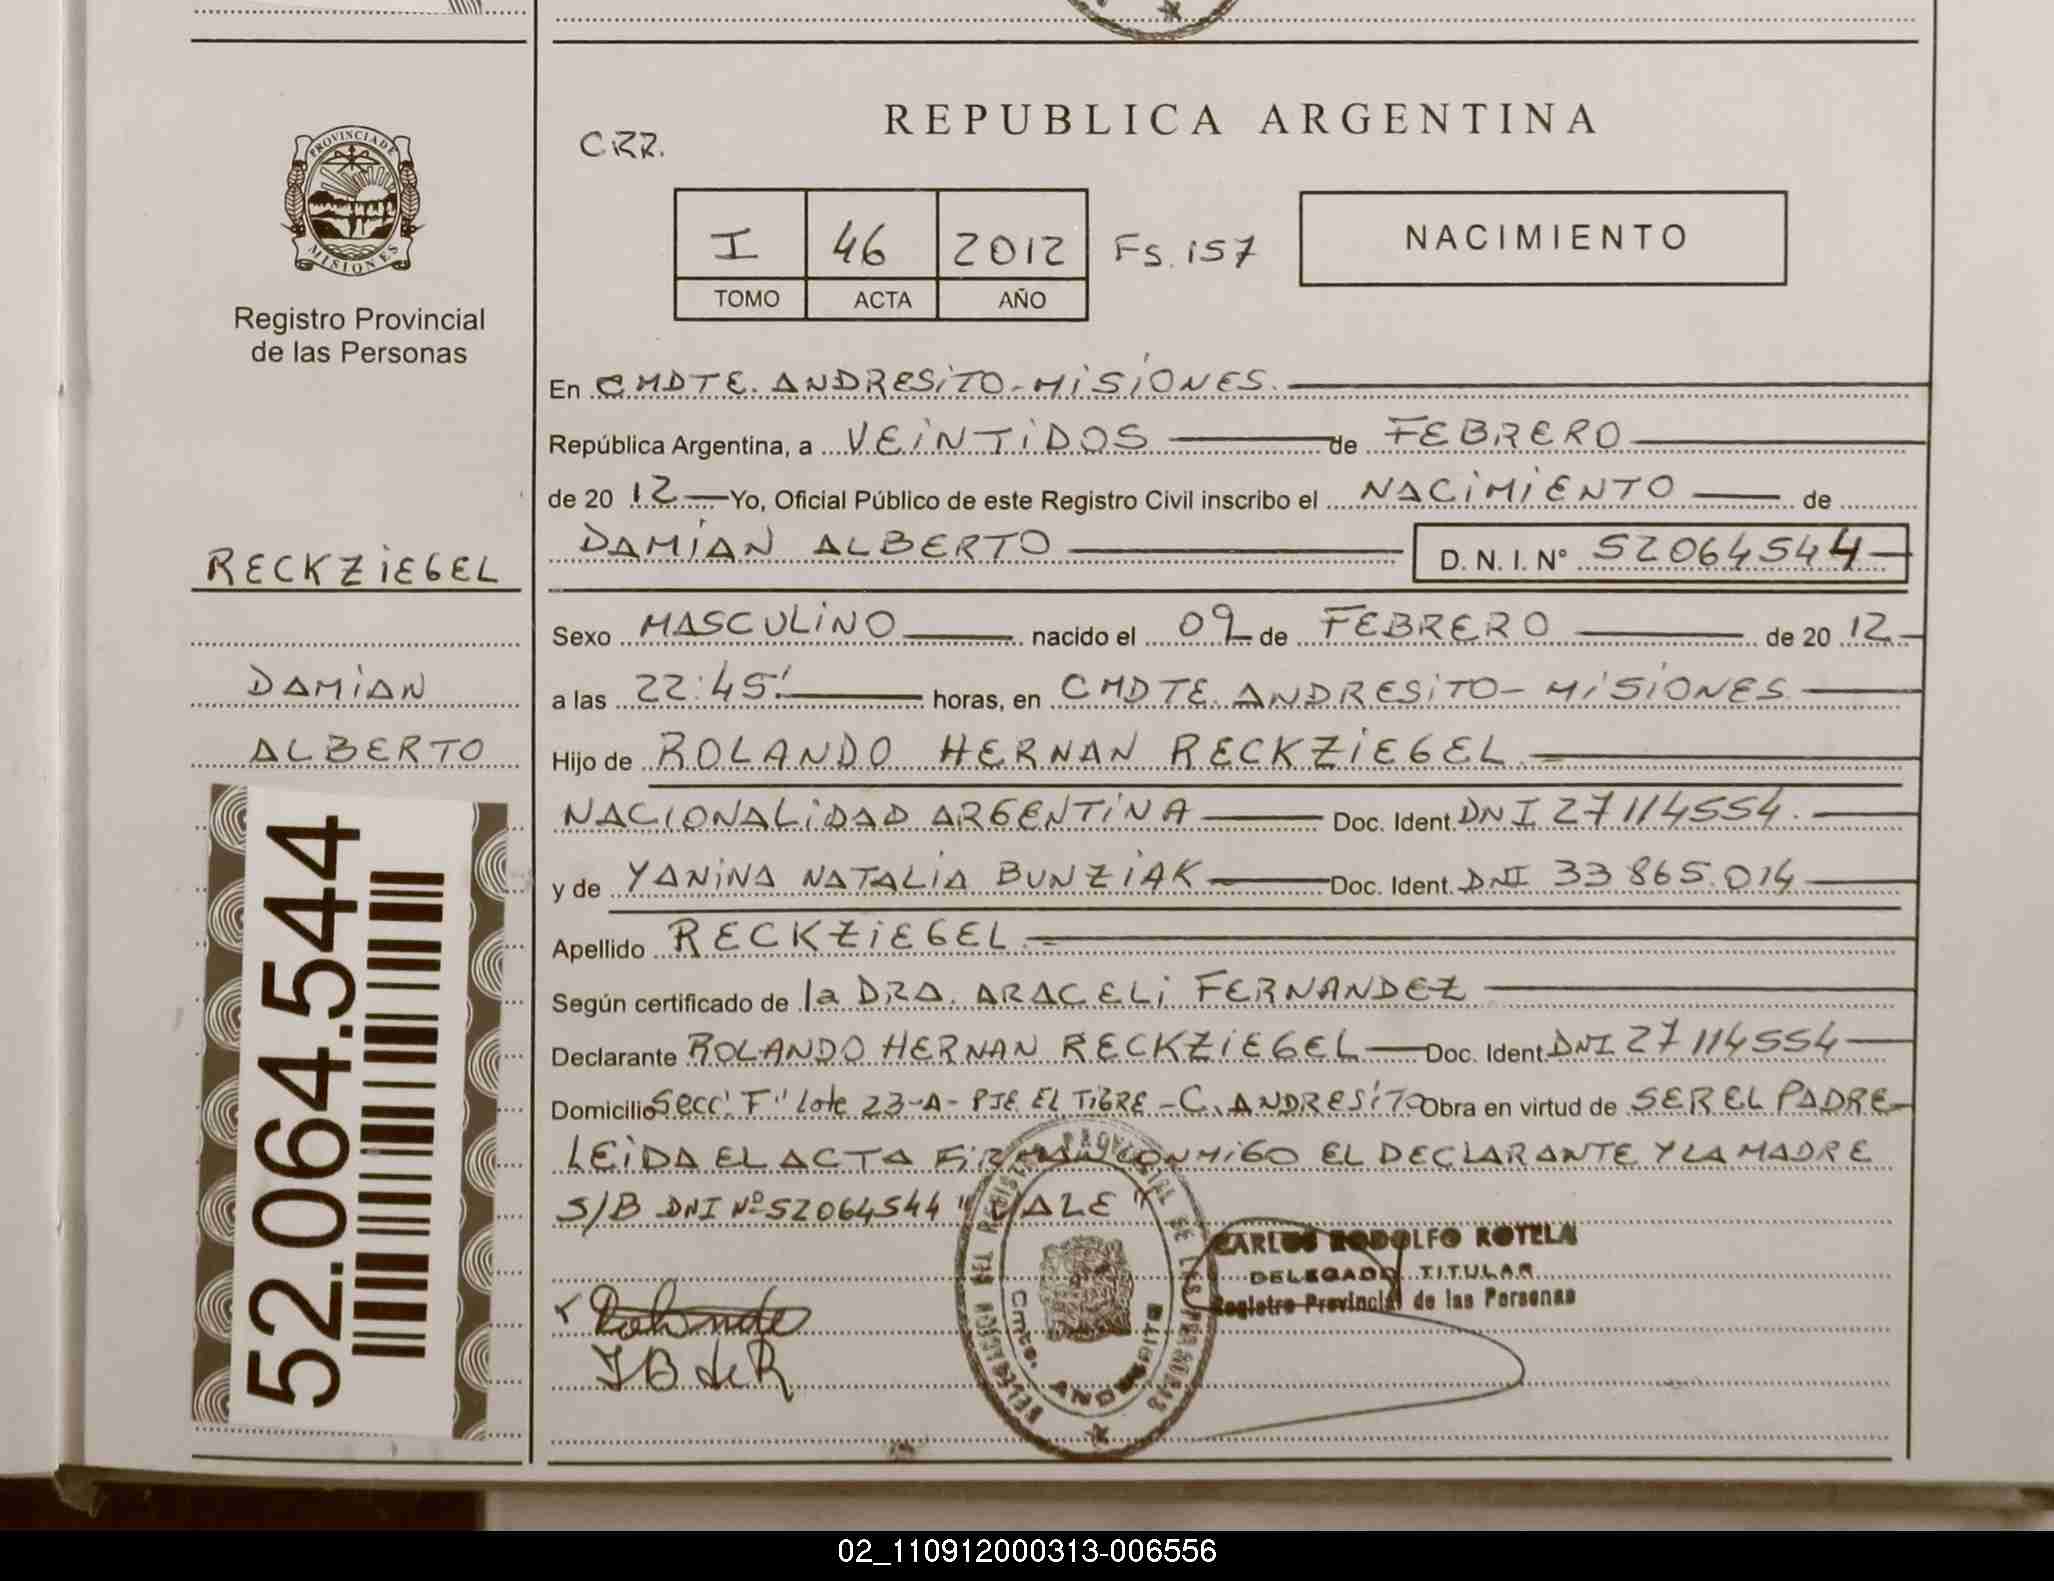 PROVINCIA DE
MISIONES
Registro Provincial
de las Personas
RECKZIEGEL
DAMIAN
ALBERTO
52.064.544
REPUBLICA ARGENTINA
CRR.
I 46 2012 Fs. 157
TOMO ACTA AÑO
NACIMIENTO
En CMDTE. ANDRESITO - MISIONES.
República Argentina, a VEINTIDOS de FEBRERO
de 20 12 Yo, Oficial Público de este Registro Civil inscribo el NACIMIENTO de
DAMIAN ALBERTO D. N. I. N° 52064544
Sexo MASCULINO nacido el 09 de FEBRERO de 20 12
a las 22:45' horas, en CMDTE. ANDRESITO - MISIONES
Hijo de ROLANDO HERNAN RECKZIEGEL
NACIONALIDAD ARGENTINA Doc. Ident. DNI 27114554.
y de YANINA NATALIA BUNZIAK Doc. Ident. DNI 33865.014
Apellido RECKZIEGEL
Según certificado de la DRA. ARACELI FERNANDEZ
Declarante ROLANDO HERNAN RECKZIEGEL Doc. Ident. DNI 27114554
Domicilio Secc. "F" Lote 23-A- PJE EL TIGRE - C. ANDRESITO Obra en virtud de SER EL PADRE-
LEIDA EL ACTA FIRMAN CONMIGO EL DECLARANTE Y LA MADRE
S/B DNI Nº 52064544 "VALE"
CARLOS RODOLFO ROTELA
DELEGADO TITULAR
Registro Provincial de las Personas
Cmte. ANDRESITO
02_110912000313-006556